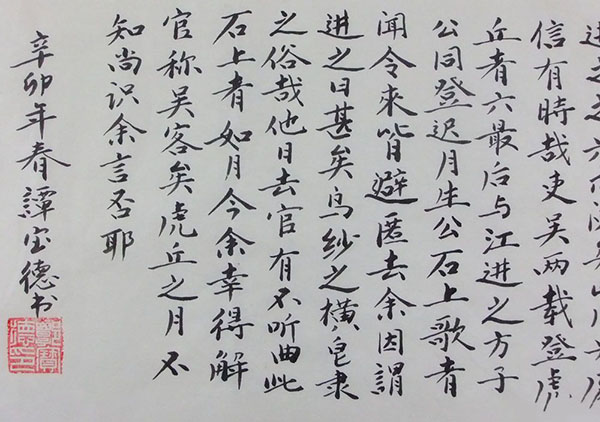 信有時哉吏吴两载登虎
丘者六最后与江进之方子
公同登迟月生公石上歌者
闻令來皆避匿去余因謂
进之曰甚矣乌纱之横皂隶
之俗哉他日去官有不听曲此
石上者如月今余幸得解
官称吴客矣虎丘之月不
知尚识余言否耶
辛卯年春譚宝德书
譚寶德印